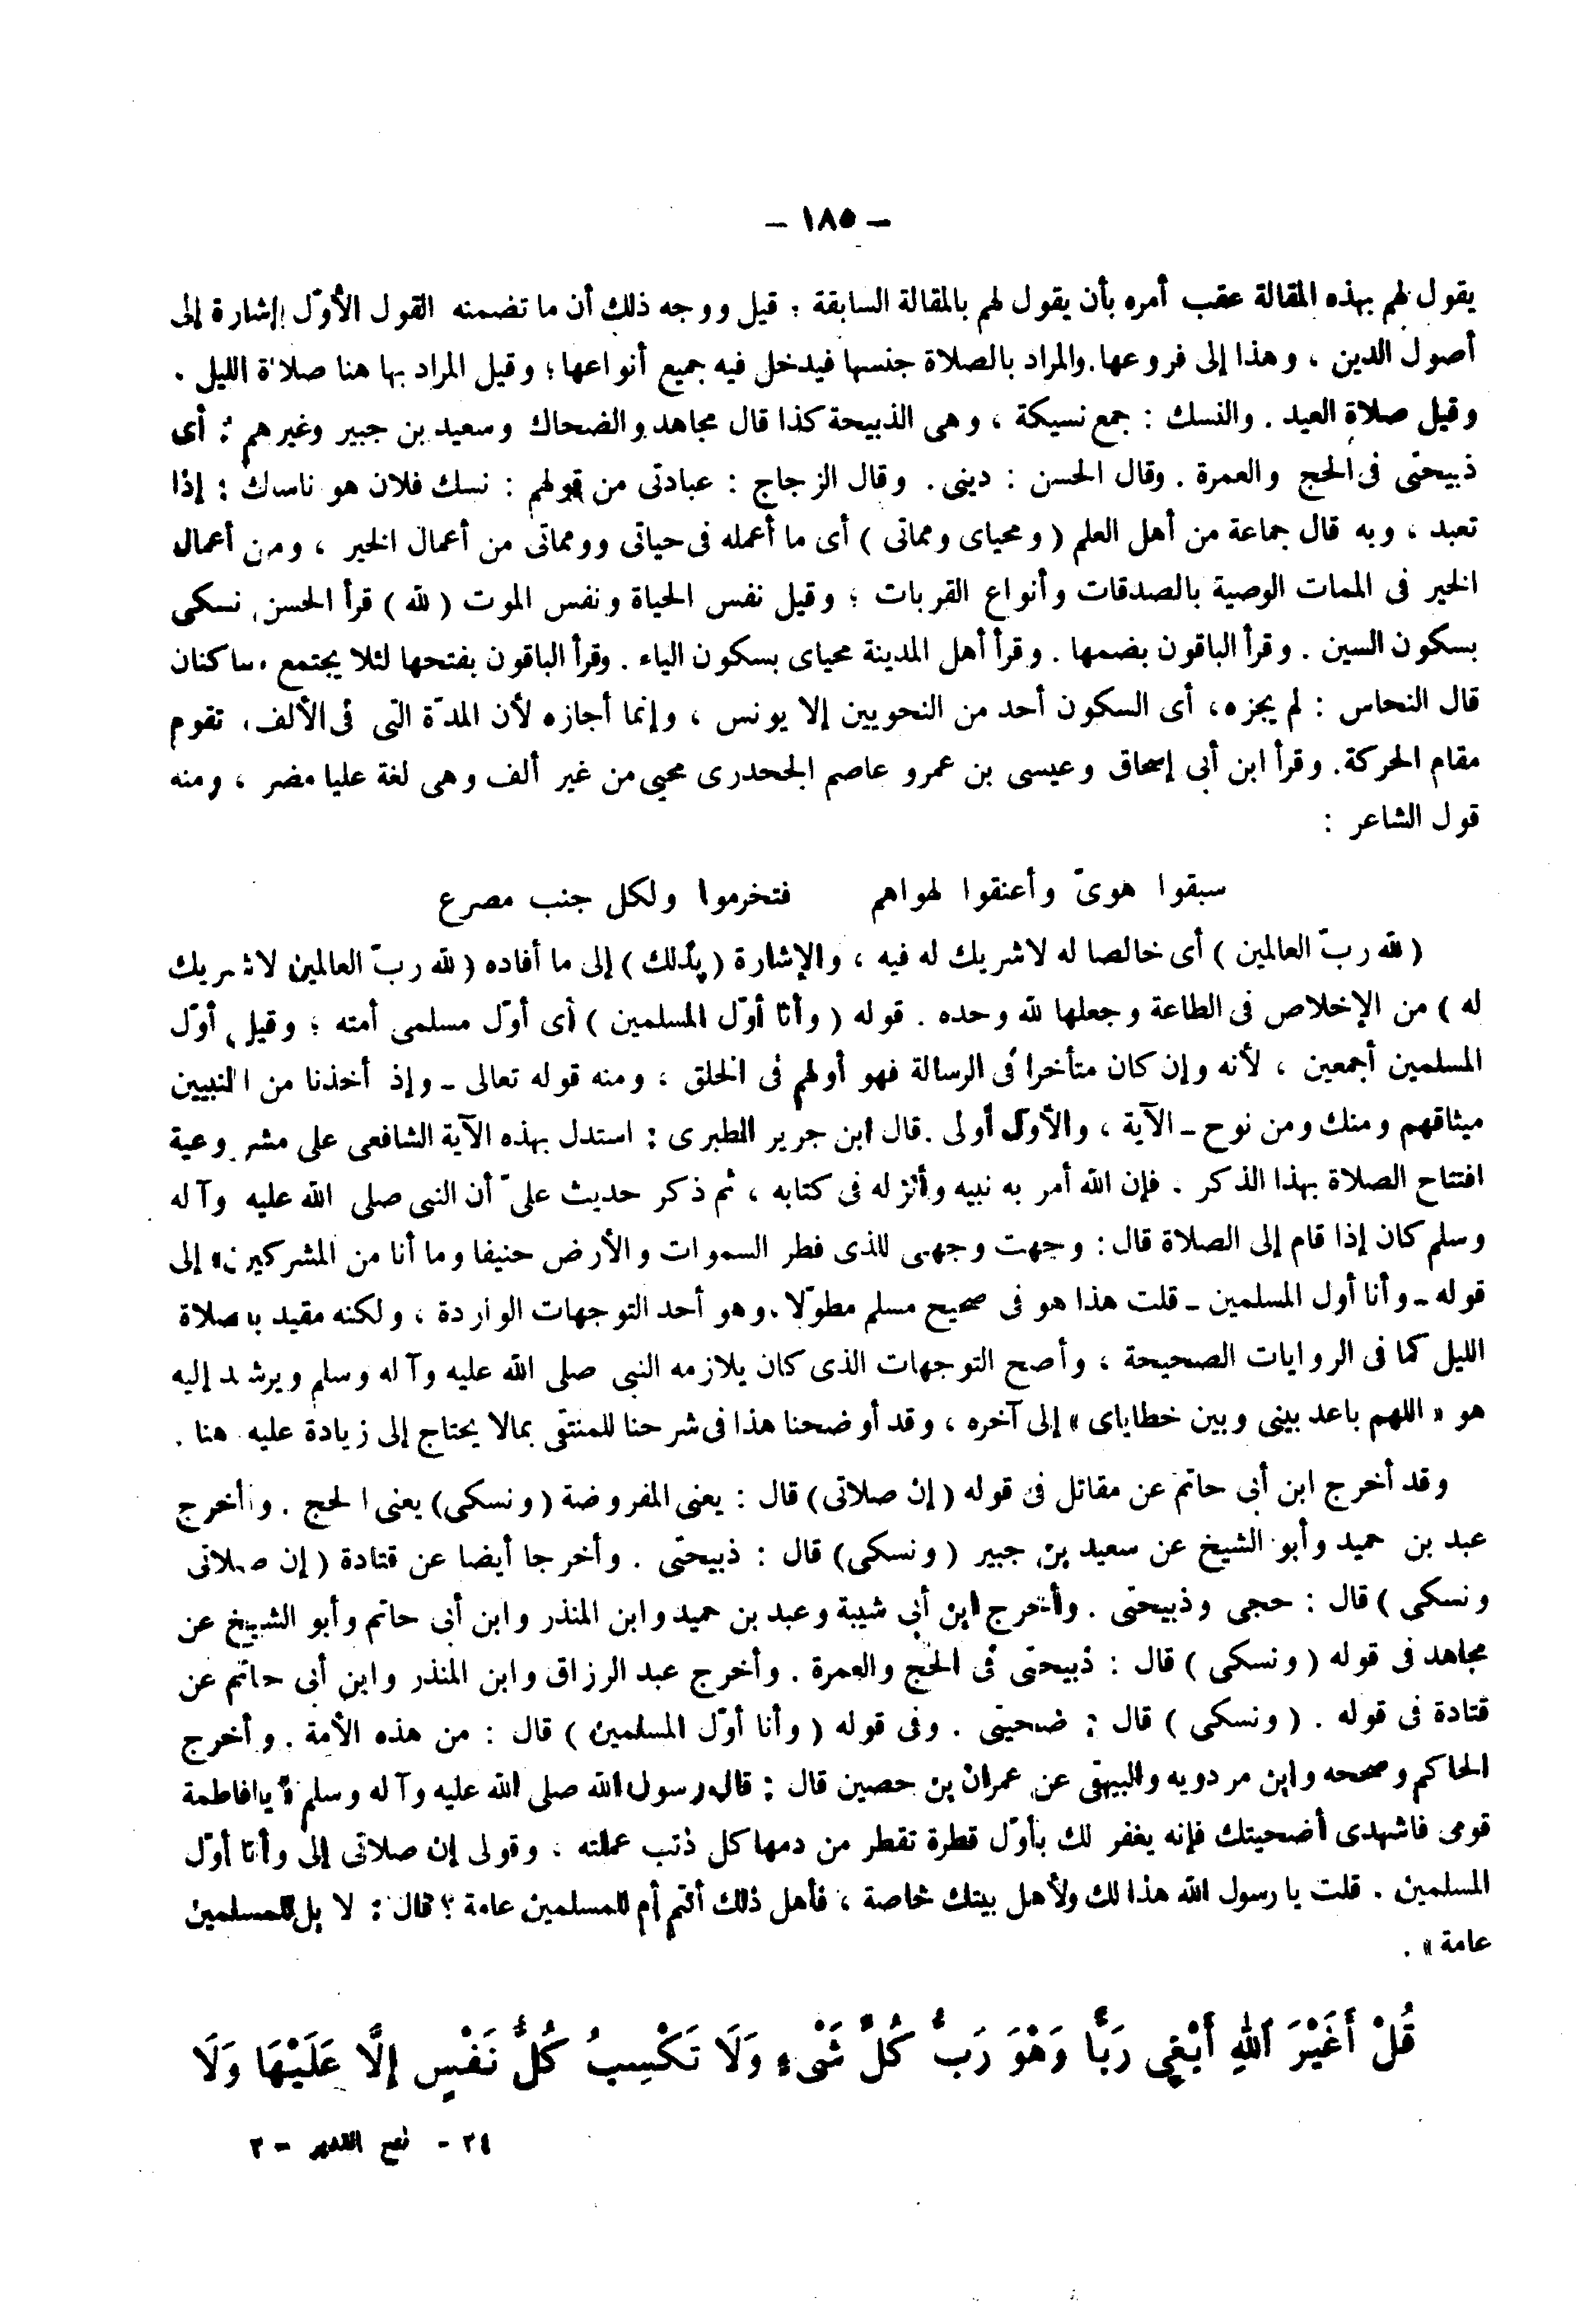 – ١٨٥ –
يقول لهم بهذه المقالة عقب أمره بأن يقول لهم بالمقالة السابقة ؛ قيل ووجه ذلك أن ما تضمنه القول الأوّل إشارة إلى
أصول الدين ، وهذا إلى فروعها . والمراد بالصلاة جنسها فيدخل فيه جميع أنواعها ؛ وقيل المراد بها هنا صلاة الليل .
وقيل صلاة العيد . والنسك : جمع نسيكة ، وهى الذبيحة كذا قال مجاهد والضحاك وسعيد بن جبير وغيرهم : أى
ذبيحتى فى الحج والعمرة . وقال الحسن : دينى . وقال الزجاج : عبادتى من قولهم : نسك فلان هو ناسك : إذا
تعبد ، وبه قال جماعة من أهل العلم ( ومحياى ومماتى ) أى ما أعمله فى حياتى وومماتى من أعمال الخير ، ومن أعمال
الخير فى الممات الوصية بالصدقات وأنواع القربات ؛ وقيل نفس الحياة ونفس الموت ( لله ) قرأ الحسن نسكى
بسكون السين . وقرأ الباقون بضمها . وقرأ أهل المدينة محياى بسكون الياء . وقرأ الباقون بفتحها لئلا يجتمع ساكنان
قال النحاس : لم يجزه ، أى السكون أحد من النحويين إلا يونس ، وإنما أجازه لأن المدّة التى فى الألف تقوم
مقام الحركة . وقرأ ابن أبى إسحاق وعيسى بن عمرو عاصم الجحدرى محيى من غير ألف وهى لغة عليا مضر ، ومنه
قول الشاعر :
سبقوا هوىّ وأعنقوا لهواهم فتخرموا ولكل جنب مصرع
( لله ربّ العالمين ) أى خالصا له لا شريك له فيه ، والإشارة ( بذلك ) إلى ما أفاده ( لله ربّ العالمين لا شريك
له ) من الإخلاص فى الطاعة وجعلها لله وحده . قوله ( وأنا أوّل المسلمين ) أى أوّل مسلمى أمته ؛ وقيل أوّل
المسلمين أجمعين ، لأنه وإن كان متأخرا فى الرسالة فهو أولهم فى الخلق ، ومنه قوله تعالى ـ وإذ أخذنا من النبيين
ميثاقهم ومنك ومن نوح ـ الآية ، والأوّل أولى . قال ابن جرير الطبرى : استدل بهذه الآية الشافعى على مشروعية
افتتاح الصلاة بهذا الذكر . فإن الله أمر به نبيه وأنزله فى كتابه ، ثم ذكر حديث علىّ أن النبى صلى الله عليه وآله
وسلم كان إذا قام إلى الصلاة قال : وجهت وجهى للذى فطر السموات والأرض حنيفا وما أنا من المشركين » إلى
قوله ـ وأنا أول المسلمين ـ قلت هذا هو فى صحيح مسلم مطوّلا . وهو أحد التوجهات الواردة ، ولكنه مقيد بصلاة
الليل كما فى الروايات الصحيحة ، وأصح التوجهات الذى كان يلازمه النبى صلى الله عليه وآله وسلم ويرشد إليه
هو « اللهم باعد بينى وبين خطاياى » إلى آخره ، وقد أوضحنا هذا فى شرحنا للمنتقى بمالا يحتاج إلى زيادة عليه هنا .
وقد أخرج ابن أبى حاتم عن مقاتل فى قوله ( إن صلاتى ) قال : يعنى المفروضة ( ونسكى ) يعنى الحج . وأخرج
عبد بن حميد وأبو الشيخ عن سعيد بن جبير ( ونسكى ) قال : ذبيحتى . وأخرجا أيضا عن قتادة ( إن صلاتى
ونسكى ) قال : حجى وذبيحتى . وأخرج ابن أبى شيبة وعبد بن حميد وابن المنذر وابن أبى حاتم وأبو الشيخ عن
مجاهد فى قوله ( ونسكى ) قال : ذبيحتى فى الحج والعمرة . وأخرج عبد الرزاق وابن المنذر وابن أبى حاتم عن
قتادة فى قوله . ( ونسكى ) قال : ضحيتى . وفى قوله ( وأنا أوّل المسلمين ) قال : من هذه الأمة . وأخرج
الحاكم وصححه وابن مردويه والبيهقى عن عمران بن حصين قال : قال رسول الله صلى الله عليه وآله وسلم « يا فاطمة
قومى فاشهدى أضحيتك فإنه يغفر لك بأوّل قطرة تقطر من دمها كل ذنب عملته ، وقولى إن صلاتى إلى وأنا أوّل
المسلمين . قلت يا رسول الله هذا لك ولأهل بيتك خاصة ، فأهل ذلك أنتم أم للمسلمين عامة ؟ قال : لا بل للمسلمين
عامة » .
قُلْ أَغَيْرَ ٱللهِ أَبْغِى رَبًّا وَهُوَ رَبُّ كُلِّ شَىْءٍ وَلَا تَكْسِبُ كُلُّ نَفْسٍ إِلَّا عَلَيْهَا وَلَا
٢٤ - فتح القدير - ٢